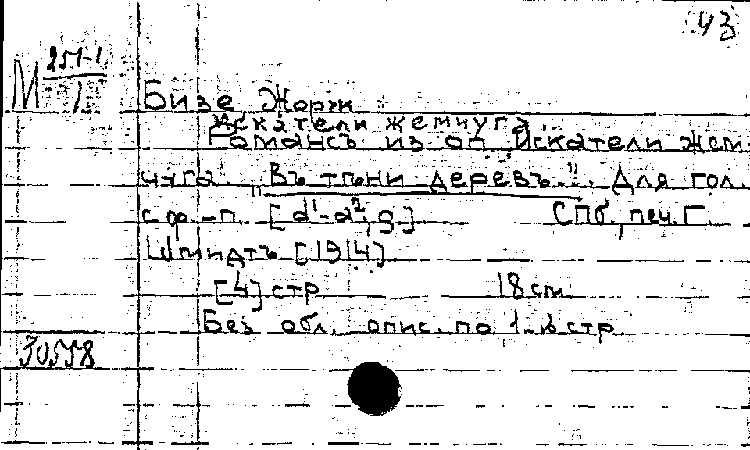 43
М 251-1
1
Бизе Жорж
Искатели жемчуга.
Романсъ из оп. "Искатели жем
чуга". "Въ тѣни деревъ..". Для гол.
с ф.-п. [d¹-a², g.] СПб, печ. Г.
Шмидтъ [1914].
[4] стр 18 cm.
Без обл. опис. по 1-й стр
30558